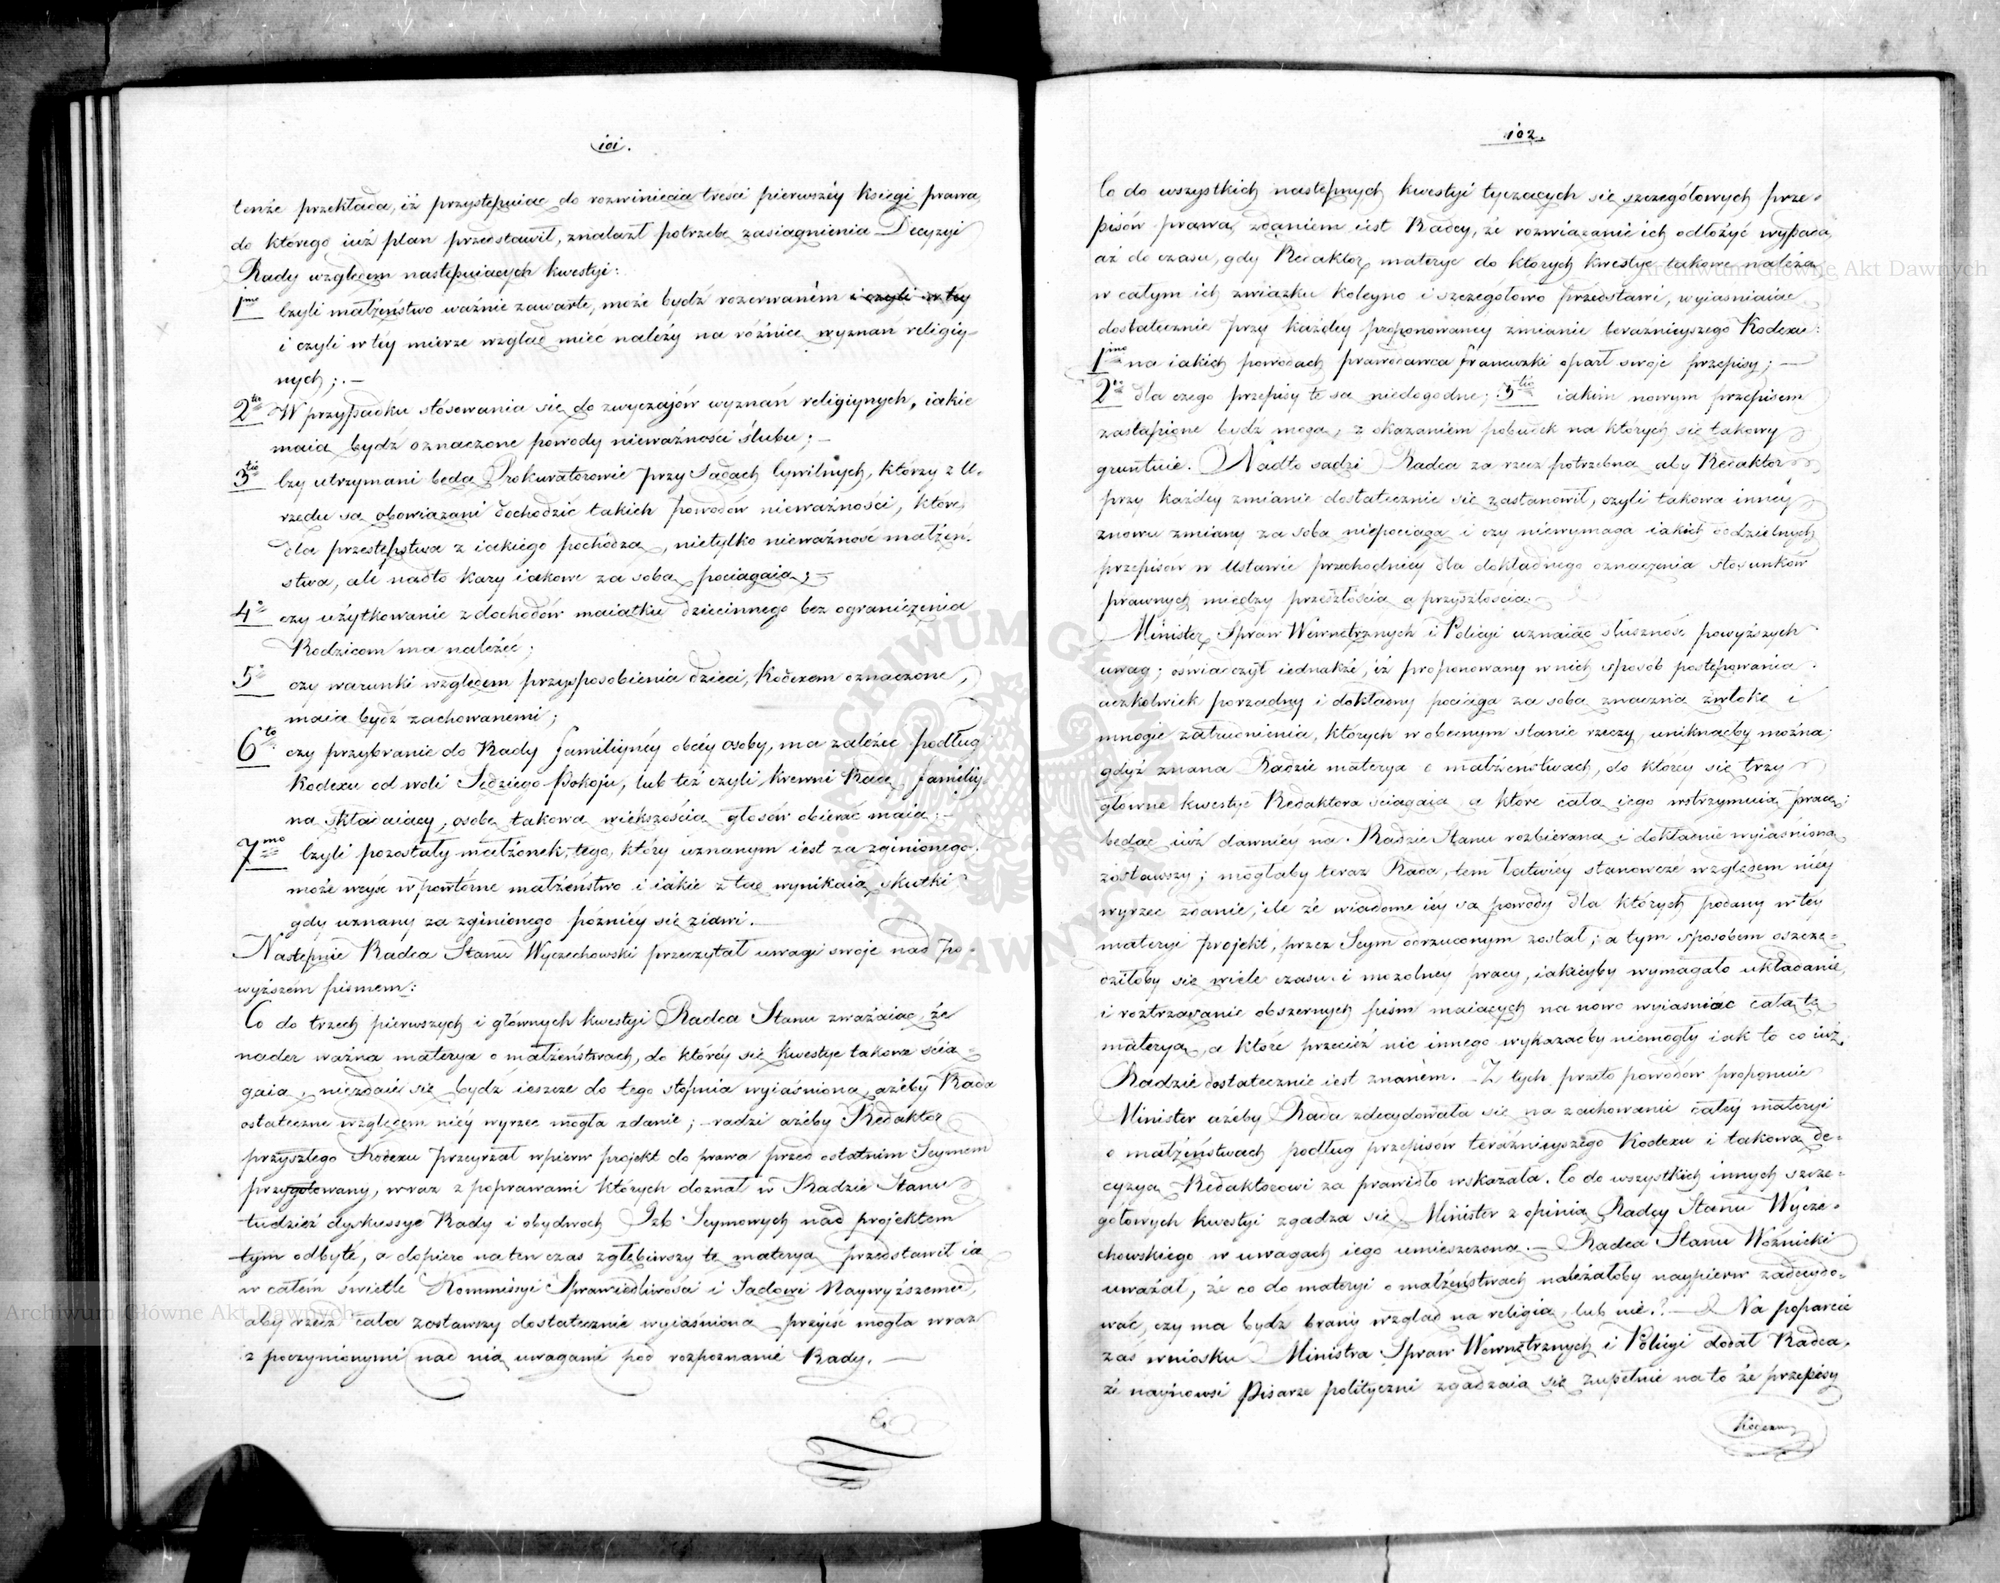 101.
tenże przekłada, iż przystępuiąc do rozwinięcia treści pierwszéy księgi prawa
do którego iuż plan przedstawił, znalazł potrzebę zasiągnienia Decyzyi
Rady względem następuiących kwestyi:
1mo czyli małżeństwo ważnie zawarte, może bydź rozerwaném i czyli w téy
i czyli w téy mierze wzgląd mieć należy na różnicę wyznań religiy-
nych; .—
2do W przypadku stósowania się do zwyczajów wyznań religiynych, iakie
maią bydź oznaczone powody nieważności ślubu; —
3tio Czy utrzymani będą Prokuratorowie przy Sądach Cywilnych, którzy z U-
rzędu są obowiązani dochodzić takich powodów nieważności, które
dla przestępstwa z iakiego pochodzą, nietylko nieważność małżeń-
stwa, ale nadto kary iakowe za sobą pociągaią; —
4o czy użytkowanie z dochodów maiątku dziecinnego bez ograniczenia
Rodzicom ma należéć;
5o czy warunki względem przysposobienia dzieci, Kodexem oznaczone,
maią bydź zachowanemi;
6to czy przybranie do Rady familiynéy obcéy osoby, ma zależeć podług
Kodexu od woli Sędziego Pokoju, lub też czyli krewni Radę familiy-
ną składaiący, osobę takową większością głosów obierać maią. —
7mo Czyli pozostały małżonek, tego, który uznanym iest za zginionego,
może weyść w powtórne małżeństwo i iakie z tąd wynikaią skutki
gdy uznany za zginionego późniéy się ziawi. —
Następnie Radca Stanu Wyczechowski przeczytał uwagi swoje nad po-
wyższém pismem:
Co do trzech pierwszych i głównych kwestyi Radca Stanu zważaiąc, że
nader ważna materya o małżeństwach, do któréy się kwestye takowe ścią-
gaią, niezdaie się bydź ieszcze do tego stopnia wyiaśnioną, ażeby Rada
ostateczne względem niéy wyrzec mogła zdanie; – radzi ażeby Redaktor
przyszłego Kodexu przeyrzał wpierw projekt do prawa przed ostatnim Seymem
przygotowany, wraz z poprawami których doznał w Radzie Stanu
tudzież dyskussye Rady i obydwoch Izb Seymowych nad projektem
tym odbyte, a dopiero na ten czas zgłębiwszy tę materyą przedstawił ią
w całém świetle Kommissyi Sprawiedliwości i Sądowi Naywyższemu,
aby rzecz cała zostawszy dostatecznie wyiaśnioną przyiść mogła wraz
z poczynionymi nad nią uwagami pod rozpoznanie Rady. —
Co
102.
Co do wszystkich następnych kwestyi tyczących się szczegółowych prze-
pisów prawa, zdaniem iest Radcy, że rozwiązanie ich odłożyć wypada
aż do czasu, gdy Redaktor materye do których kwestye takowe należą
w całym ich związku koleyno i szczegółowo przedstawi, wyiaśniaiąc
dostatecznie przy każdéy proponowanéy zmianie teraźnieyszego Kodexu:
1mo na iakich powodach prawodawca francuzki oparł swoje przepisy; —
2do dla czego przepisy te są niedogodne; 3tio iakim nowym przepisem
zastąpione bydź mogą, z okazaniem pobudek na których się takowy
gruntuie. Nadto sądzi Radca za rzecz potrzebną aby Redaktor
przy każdéy zmianie dostatecznie się zastanowił, czyli takowa innéy
znowu zmiany za sobą niepociąga i czy niewymaga iakich oddzielnych
przepisów w Ustawie przechodniéy dla dokładnego oznaczenia stosunków
prawnych między przeszłością a przyszłością. —
Minister Spraw Wewnętrznych i Policyi uznaiąc słuszność powyższych
uwag; oświadczył iednakże, iż proponowany w nich sposób postępowania
aczkolwiek porządny i dokładny pociąga za sobą znaczną zwłokę i
mnogie zatrudnienia, których w obecnym stanie rzeczy uniknąćby można;
gdyż znana Radzie materya o małżeństwach, do któréy się trzy
główne kwestye Redaktora ściągaią a które całą iego wstrzymuią pracę,
będąc iuż dawniéy na Radzie Stanu rozbieraną i dokładnie wyiaśnioną
zostawszy; mogłaby teraz Rada, tem łatwiéy stanowcze względem niéy
wyrzec zdanie, ile że wiadome iéy są powody dla których podany w téy
materyi projekt, przez Seym odrzuconym został; a tym sposobem oszczę-
dziłoby się wiele czasu i mozolnéy pracy, iakiéyby wymagało układanie
i roztrząsanie obszernych pism maiących na nowo wyiaśniać całą tę
materyą, a które przecież nic innego wykazaćby niemogły iak to co iuż
Radzie dostatecznie iest znaném. — Z tych przeto powodów proponuie
Minister ażeby Rada zdecydowała się na zachowanie całéy materyi
o małżeństwach podług przepisów teraźnieyszego Kodexu i takową de-
cyzyą Redaktorowi za prawidło wskazała. Co do wszystkich innych szcze-
gółowych kwestyi zgadza się Minister z opinią Radcy Stanu Wycze-
chowskiego w uwagach iego umieszczoną. — Radca Stanu Woźnicki
uważał, że co do materyi o małżeństwach należałoby naypierw zadecydo-
wać, czy ma bydź brany wzgląd na religią, lub nie? — Na poparcie
zaś wniosku Ministra Spraw Wewnętrznych i Policyi dodał Radca,
że naynowsi Pisarze polityczni zgadzaią się zupełnie na to że przepisy
Kodexu
Archiwum Główne Akt Dawnych
Archiwum Główne Akt Dawnych
ARCHIWUM GŁÓWNE AKT DAWNYCH